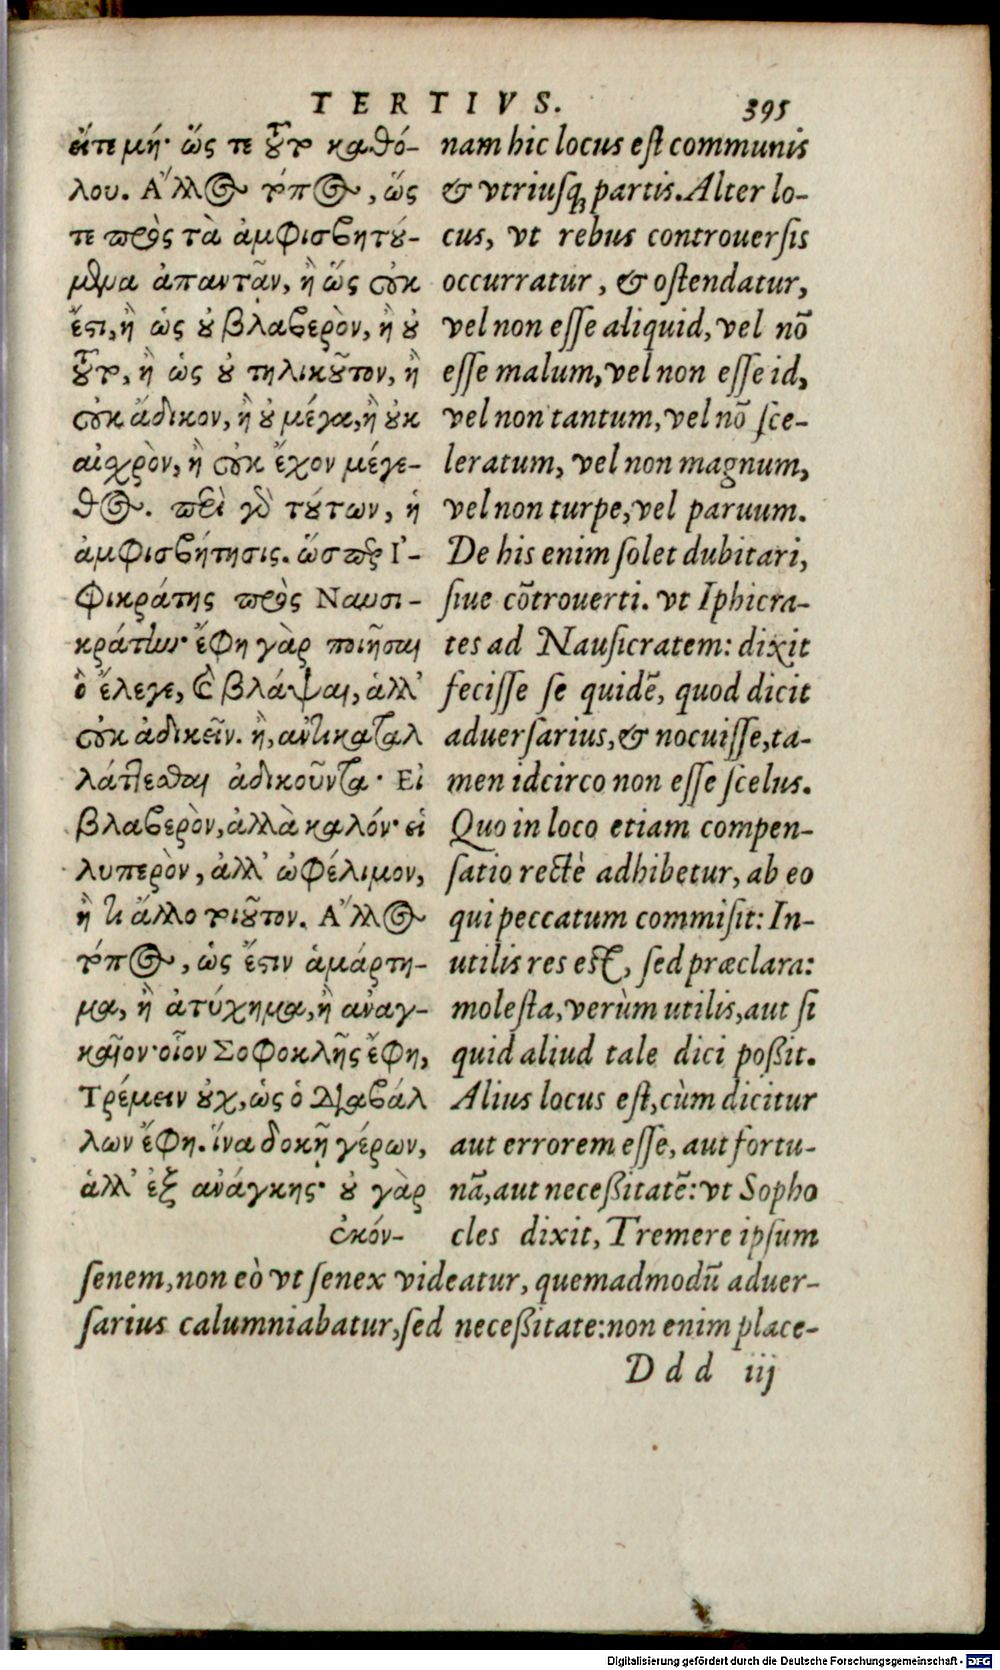 TERTIVS. 395
εἴτε μή· ὥς τε τοῦτο καθό-
λου. Ἄλλος τρόπος, ὥς
τε πρὸς τὰ ἀμφισβητού-
μενα ἀπαντᾶν, ἢ ὥς οὐκ
ἔστι, ἢ ὡς οὐ βλαβερὸν, ἢ οὐ
τοῦτο, ἢ ὡς οὐ τηλικοῦτον, ἢ
οὐκ ἄδικον, ἢ οὐ μέγα, ἢ οὐκ
αἰσχρὸν, ἢ οὐκ ἔχον μέγε-
θος. περὶ γὸ τούτων, ἡ
ἀμφισβήτησις. ὥσπερ Ἰ-
φικράτης πρὸς Ναυσι-
κράτην· ἔφη γὰρ ποιῆσαι
ὃ ἔλεγε, καὶ βλάψαι, ἀλλ'
οὐκ ἀδικεῖν. ἢ, ἀντικαταλ
λάττεσθαι ἀδικοῦντα· Εἰ
βλαβερὸν, ἀλλὰ καλόν· εἰ
λυπερὸν, ἀλλ' ὠφέλιμον,
ἢ τι ἄλλο τοιοῦτον. Ἄλλος
τρόπος, ὡς ἔστιν ἁμάρτη-
μα, ἢ ἀτύχημα, ἢ ἀναγ-
καῖον· οἷον Σοφοκλῆς ἔφη,
Τρέμειν οὐχ, ὡς ὁ διαβάλ
λων ἔφη. ἵνα δοκῇ γέρων,
ἀλλ' ἐξ ἀνάγκης· οὐ γὰρ
ἑκόν-
nam hic locus est communis
& vtriusq; partis. Alter lo-
cus, vt rebus controuersis
occurratur, & ostendatur,
vel non esse aliquid, vel nō
esse malum, vel non esse id,
vel non tantum, vel nō sce-
leratum, vel non magnum,
vel non turpe, vel paruum.
De his enim solet dubitari,
siue cōtrouerti. vt Iphicra-
tes ad Nausicratem: dixit
fecisse se quidē, quod dicit
aduersarius, & nocuisse, ta-
men idcirco non esse scelus.
Quo in loco etiam compen-
satio rectè adhibetur, ab eo
qui peccatum commisit: In-
utilis res est, sed præclara:
molesta, verùm utilis, aut si
quid aliud tale dici poßit.
Alius locus est, cùm dicitur
aut errorem esse, aut fortu-
nā, aut neceßitatē: vt Sopho
cles dixit, Tremere ipsum
senem, non eò vt senex videatur, quemadmodū aduer-
sarius calumniabatur, sed neceßitate: non enim place-
Ddd iij
Digitalisierung gefördert durch die Deutsche Forschungsgemeinschaft - DFG